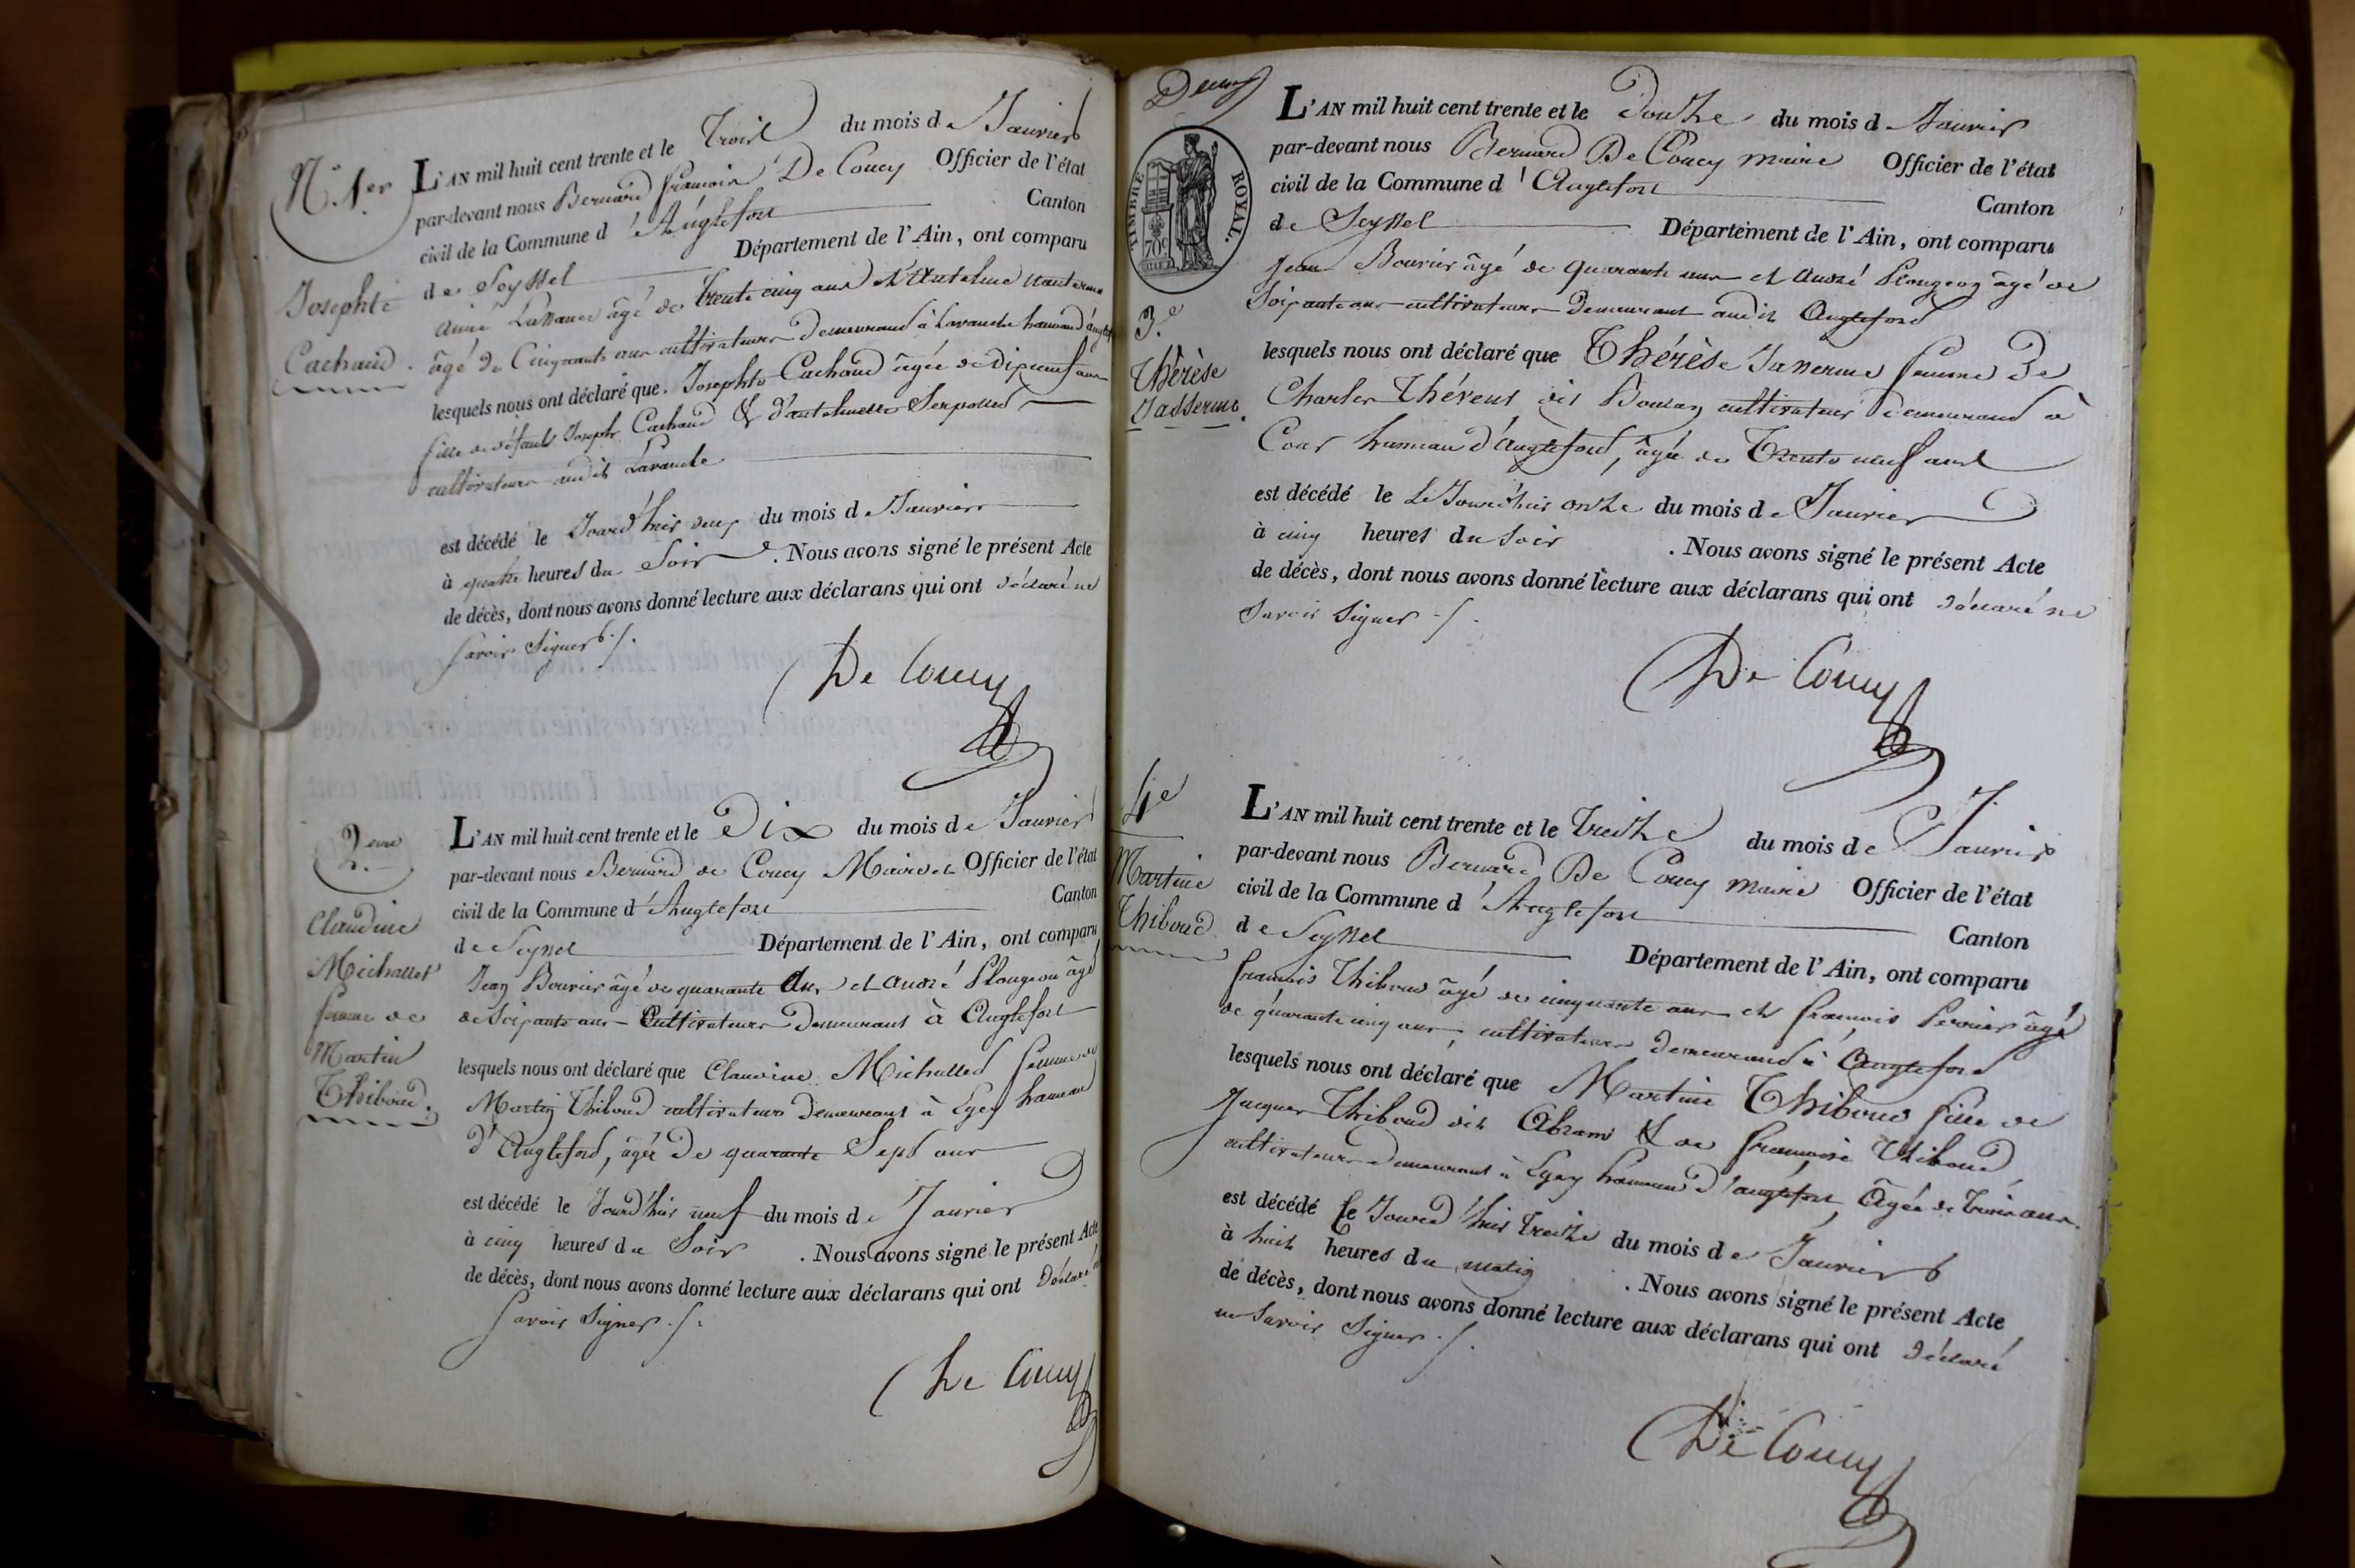 N.° 1er
Josephte
Cachaud.
L'AN mil huit cent trente et le Trois du mois de Janvier
par-devant nous Bernard françois De Coucy Officier de l'état
civil de la Commune d'Anglefort Canton
de Seyssel Département de l'Ain, ont comparu
aimé âgé de trente cinq ans et Antelme
âgé de Cinquante ans cultivateurs demeurand à Lavanche hameau d'angl
lesquels nous ont déclaré que Josephte Cachaud âgée de dixneuf ans
fille de défunt Joseph Cachaud & d'antelmette Serpollet
cultivateurs audit Lavanche
est décédé le Jourd'hier deux du mois de Janvier
à quatre heures du Soir. Nous avons signé le présent Acte
de décès, dont nous avons donné lecture aux déclarans qui ont déclaré ne
savoir Signer ./.
De Coucy
2.eme
Claudine
Michallet
femme de
Martin
Thiboud.
L'AN mil huit cent trente et le Dix du mois de Janvier
par-devant nous Bernard de Coucy Maire et Officier de l'état
civil de la Commune d'Anglefort Canton
de Seyssel Département de l'Ain, ont comparu
Jean Bouvier âgé de quarante Ans et André Plongeon âgé
de Soixante ans Cultivateurs Demeurant à Anglefort
lesquels nous ont déclaré que Claudine Michallet femme de
Martin Thiboud cultivateurs demeurant à Lyey hameau
d'Anglefort, âgée De quarante Sept ans
est décédé le Jourd'hier neuf du mois de Janvier
à cinq heures du Soir. Nous avons signé le présent Acte
de décès, dont nous avons donné lecture aux déclarans qui ont Déclaré
Savoir Signer ./.
De Coucy
Deux
TIMBRE ROYAL.
70c
3.e
Thérèse
Jasserme.
L'AN mil huit cent trente et le Douze du mois de Janvier
par-devant nous Bernard De Coucy maire Officier de l'état
civil de la Commune d'Anglefort Canton
de Seyssel Département de l'Ain, ont comparu
Jean Bouvier âgé de quarante ans et André Plongeon âgé de
Soixante ans cultivateurs Demeurant audit Anglefort
lesquels nous ont déclaré que Thérèse Jasserme femme De
Charles Thévent dit cultivateur demeurand à
Cour hameau d'Anglefort, âgée de Trente neuf ans
est décédé le Le Jourd'hier onze du mois de Janvier
à cinq heures du Soir. Nous avons signé le présent Acte
de décès, dont nous avons donné lecture aux déclarans qui ont déclaré ne
Savoir Signer ./.
De Coucy
4e
Martine
Thiboud
L'AN mil huit cent trente et le Treize du mois de Janvier
par-devant nous Bernard De Coucy maire Officier de l'état
civil de la Commune d'Anglefort Canton
de Seyssel Département de l'Ain, ont comparu
francois Thiboud âgé de cinquante ans et francois Perrier âgé
de quarante cinq ans, cultivateurs demeurand à Anglefort
lesquels nous ont déclaré que Martine Thiboud fille de
Jacques Thiboud dit Abram & de francoise Thiboud
cultivateurs demeurant à Lyey hameau d'anglefort, Agée de Trois ans.
est décédé le Jourd'hui treize du mois de Janvier
à huit heures du matin. Nous avons signé le présent Acte
de décès, dont nous avons donné lecture aux déclarans qui ont déclaré
ne Savoir Signer ./.
De Coucy